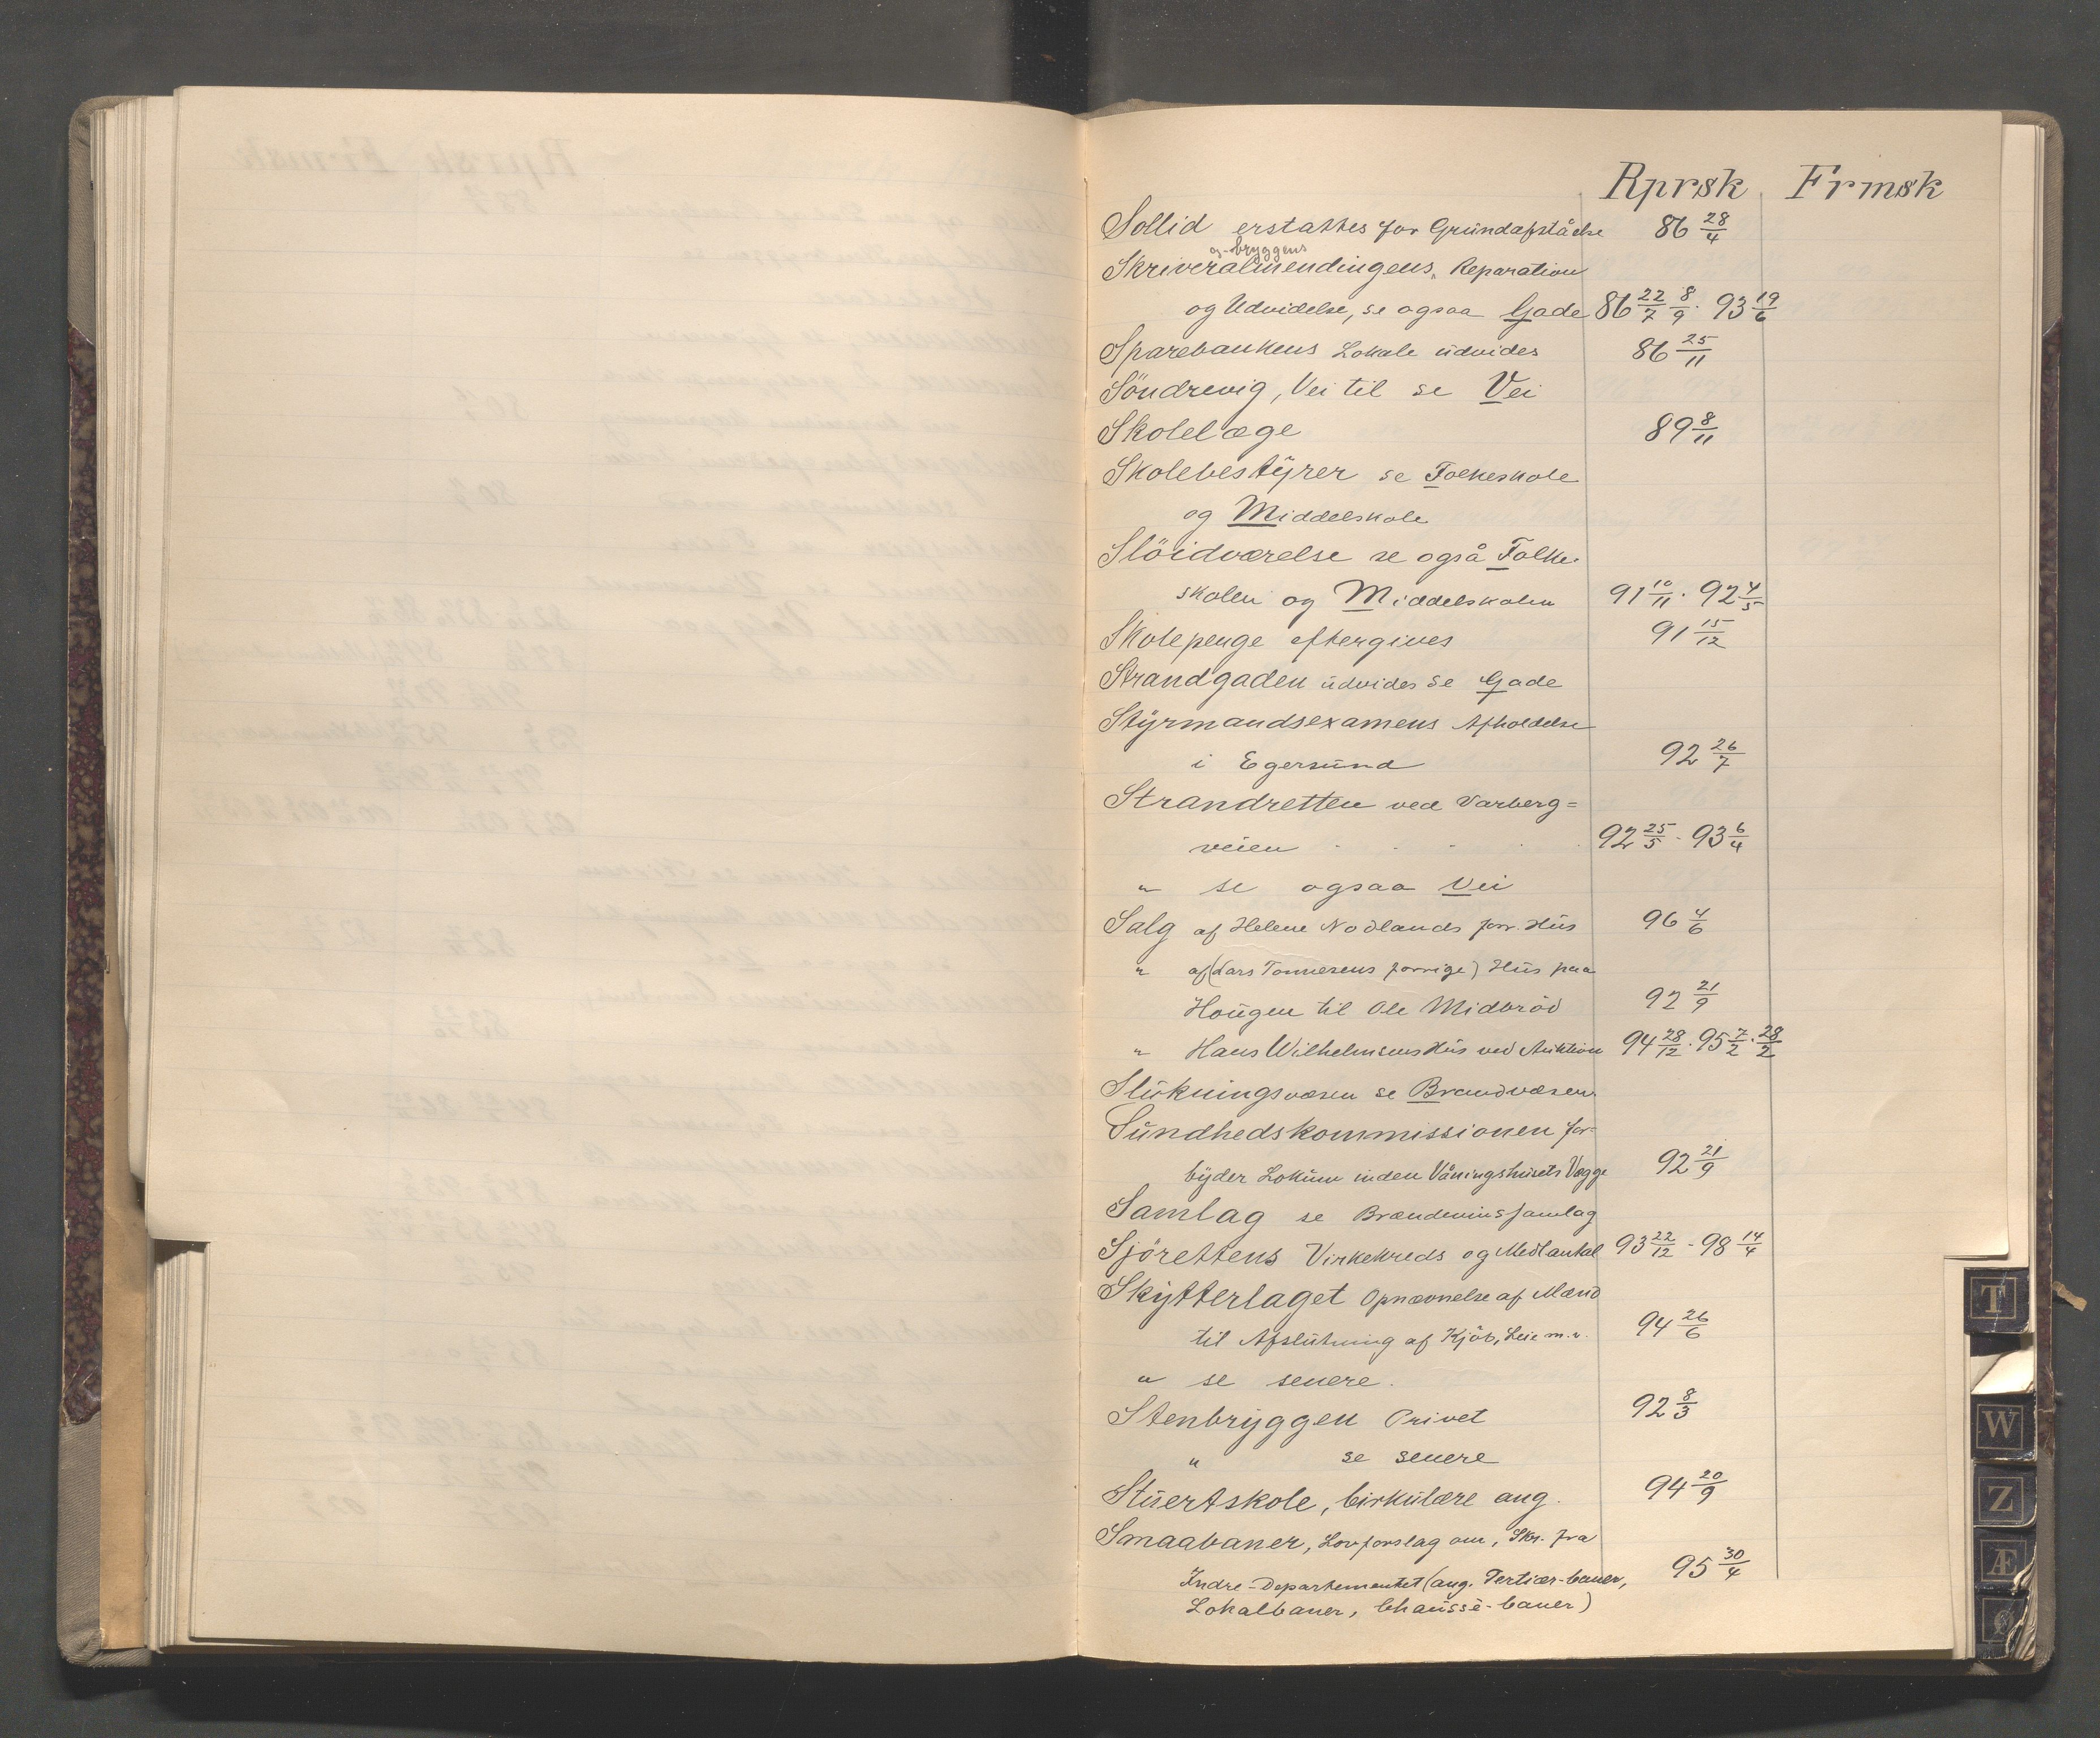 Rprsk Frmsk
Sollid erstattes for Grundafståelse 86 28/4
og-bryggens
Skriveralmendingens Reparation
og Udvidelse, se ogsaa Gade 86 22/7 8/9 . 93 19/6
Sparebankens Lokale udvides 86 25/11
Söndrevig, Vei til se Vei
Skolelæge 89 8/11
Skolebestyrer se Folkeskole
og Middelskole
Slöidværelse se også Folke-
skolen og Middelskolen 91 10/11 . 92 4/5
Skolepenge eftergives 91 15/12
Strandgaden udvides se Gade
Styrmandsexamens Afholdelse
i Egersund 92 26/7
Strandretten ved Varberg=
veien . . . . . 92 25/5 - 93 6/4
" se ogsaa Vei
Salg af Helene Nodlands forr. Hus 96 4/6
" af (Lars Tonnesens forrige) Hus paa
Hougen til Ole Midbröd 92 21/9
" Hans Wilhelmsens Hus ved Auktion 94 28/12 . 95 7/2 . 28/2
Slukningsvæsen se Brandvæsen
Sundhedskommissionen for-
byder Lokum inden Våningshusets Vægge 92 21/9
Samlag se Brændevinssamlag
Sjörettens Virkekreds og Medlantal 93 22/12 - 98 14/4
Skytterlaget Opnævnelse af Mænd
til Afslutning af Kjöb, Leie m.v. 94 26/6
" se senere.
Stenbryggen Privet 92 8/3
" se senere
Stuertskole, Cirkulære ang. 94 20/9
Smaabaner, Lovforslag om, Skr. fra
Indre-Departementet (ang. Tertiær-baner, 95 30/4
Lokalbaner, Chaussé-baner)
T
W
Z
Æ
Ø